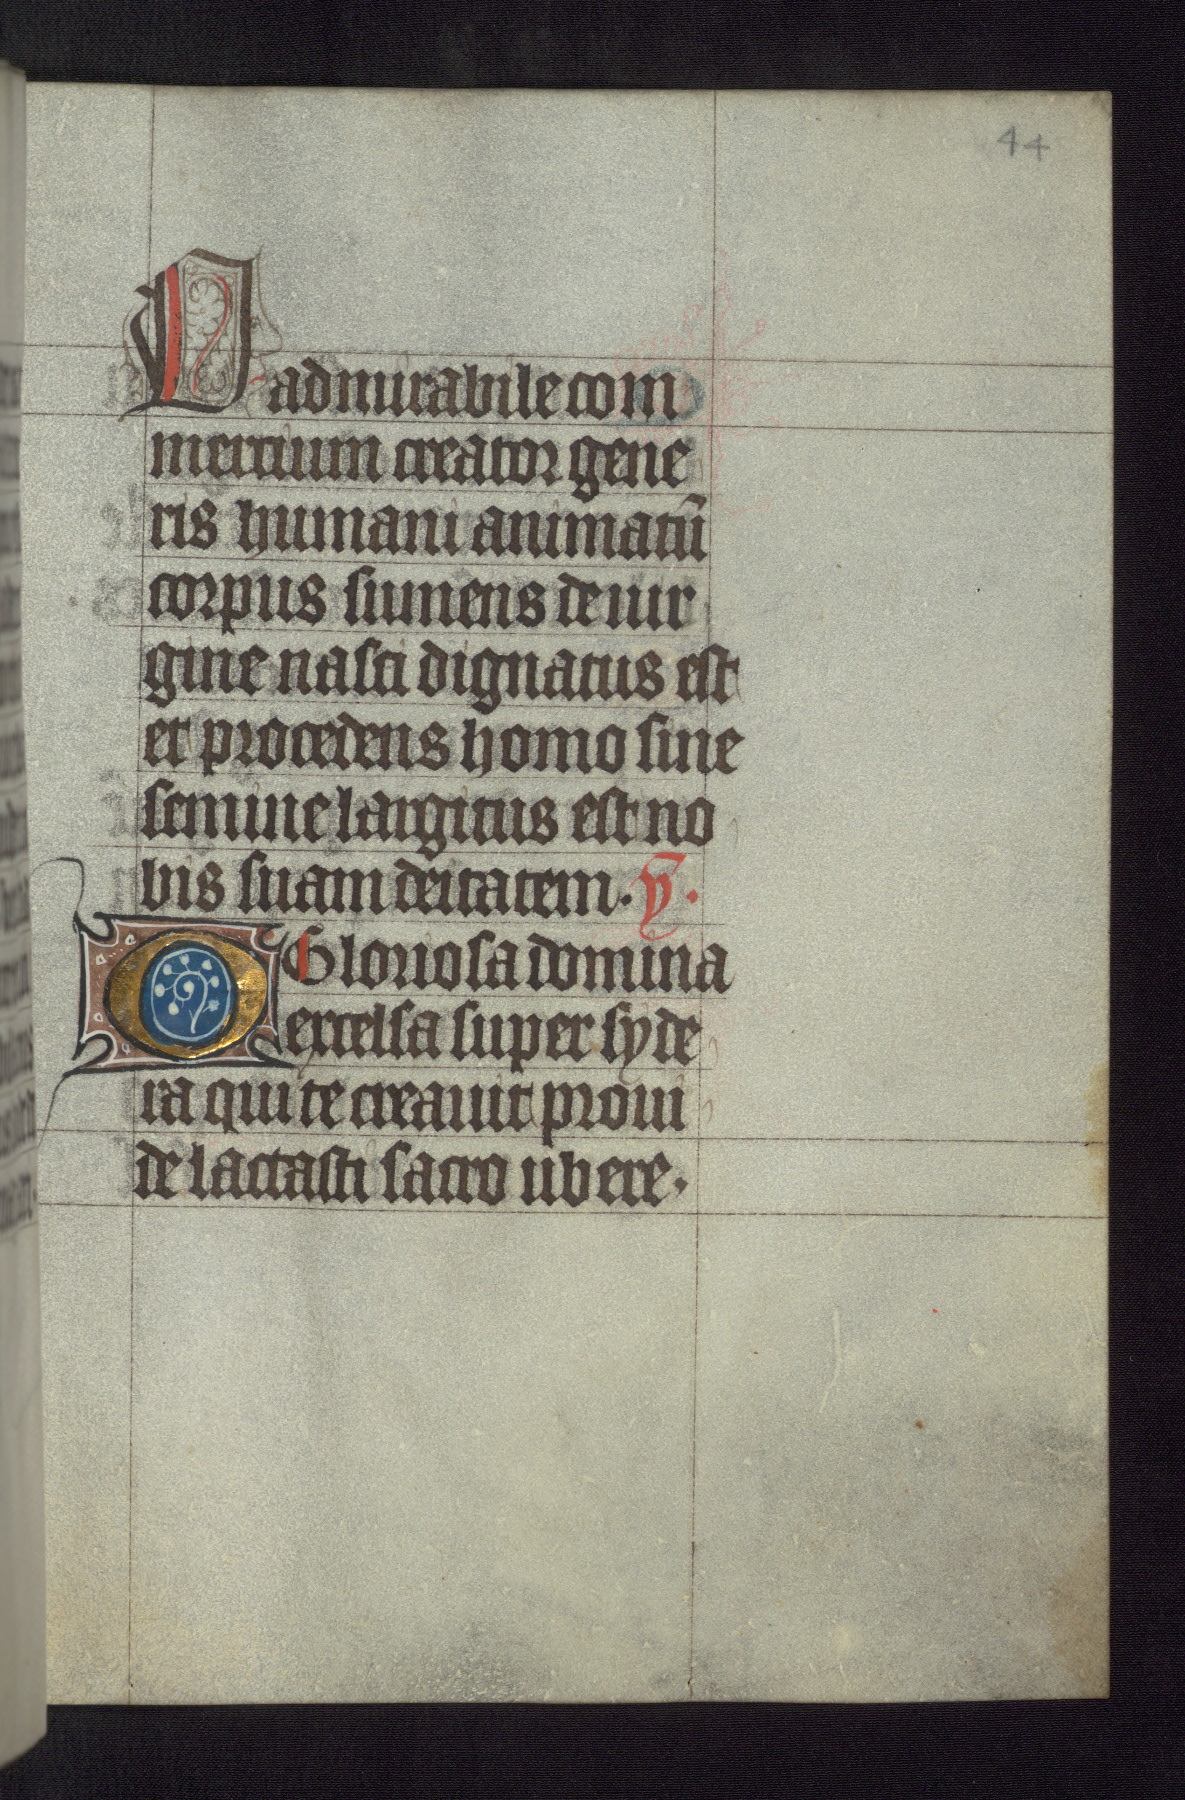 44
O admirabile com
mercium creator gene
ris humani animatū
corpus sumens de uir
gine nasci dignatus est
et procedens homo sine
semine largitus est no
bis suam deitatem. ÿ.
O Gloriosa domina
excelsa super syde
ra qui te creauit proui
de lactasti sacro ubere.